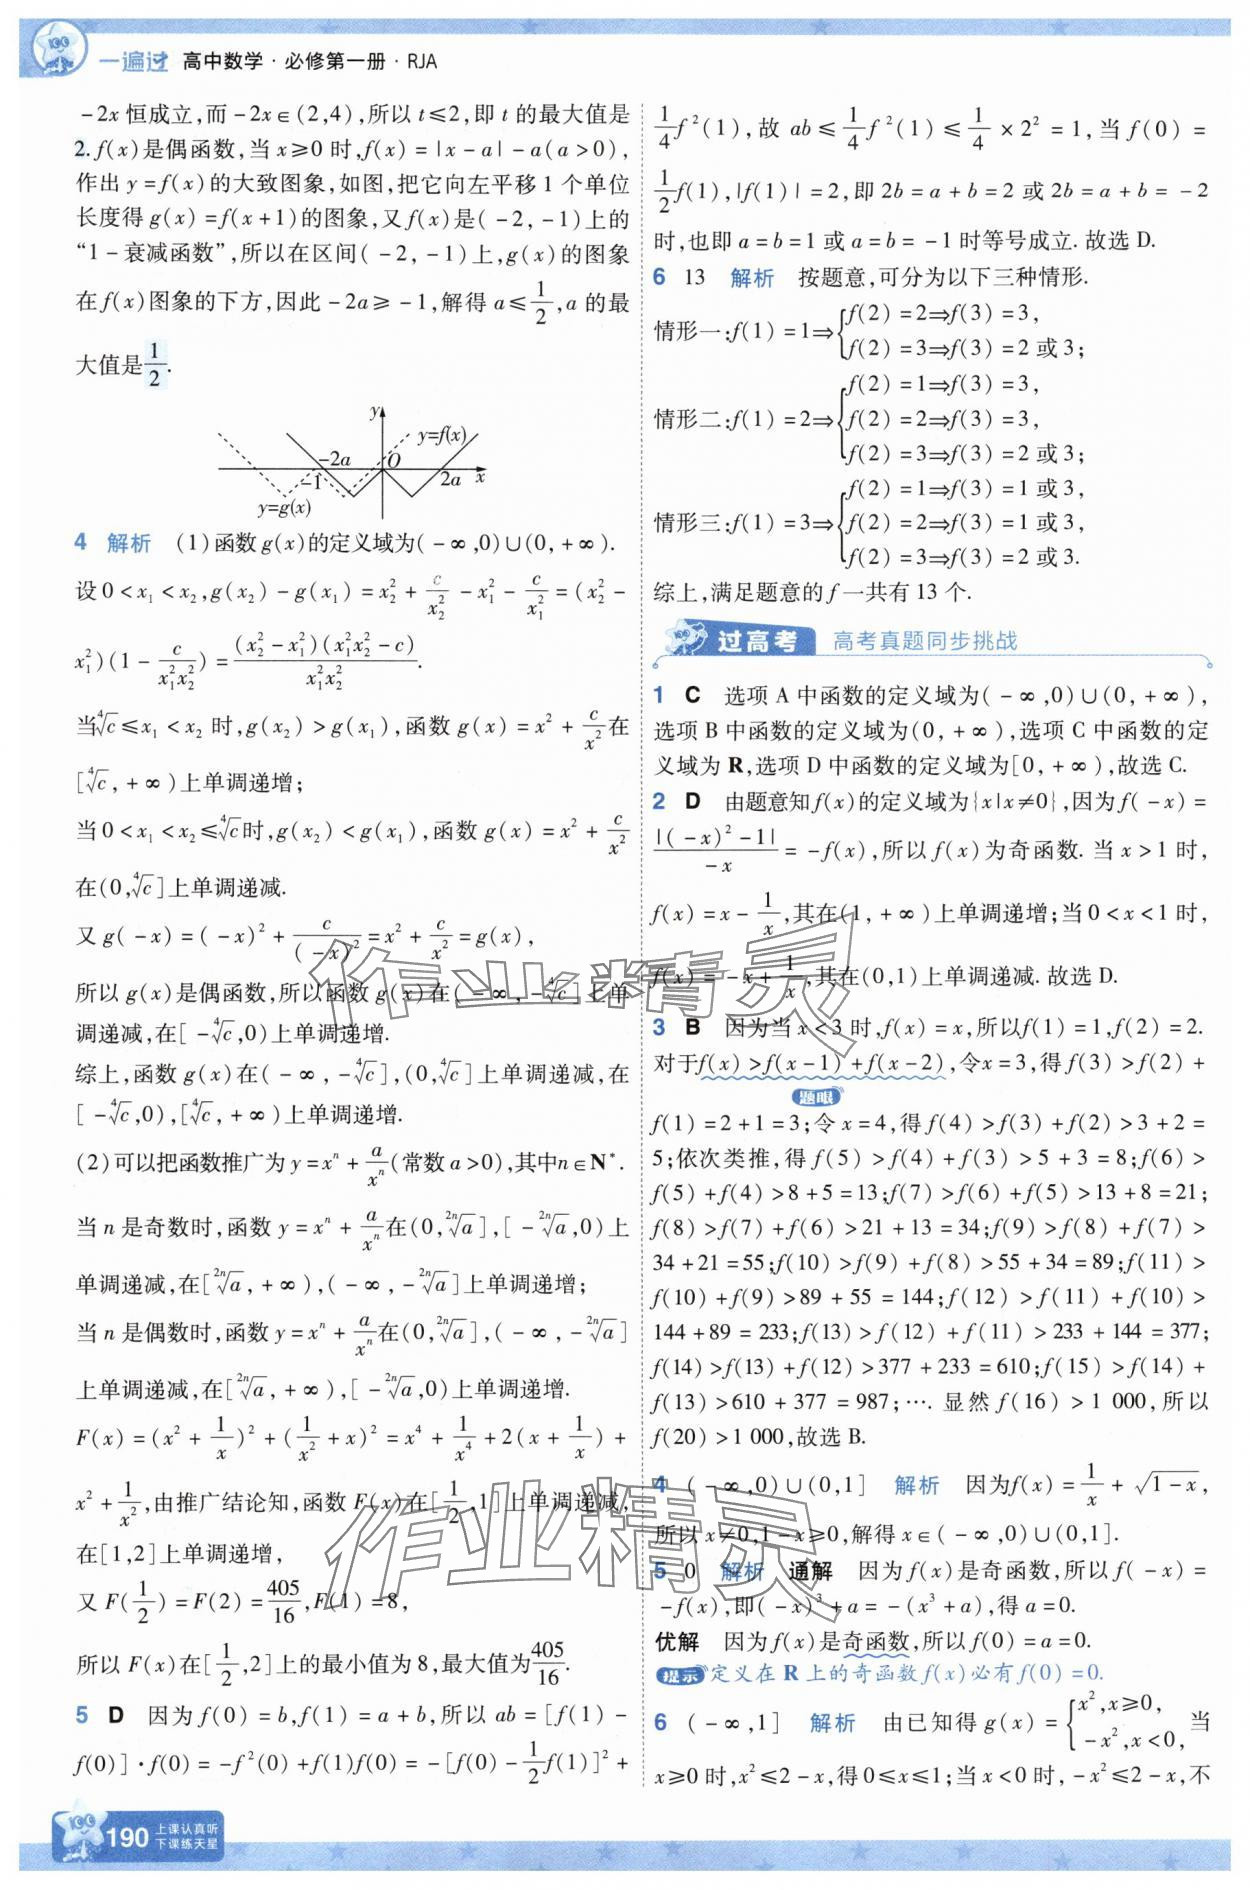 一遍过 高中数学·必修第一册·RJA
-2x恒成立,而-2x∈(2,4),所以t≤2,即t的最大值是
2.f(x)是偶函数,当x≥0时,f(x)=|x-a|-a(a>0),
作出y=f(x)的大致图象,如图,把它向左平移1个单位
长度得g(x)=f(x+1)的图象,又f(x)是(-2,-1)上的
“1-衰减函数”,所以在区间(-2,-1)上,g(x)的图象
在f(x)图象的下方,因此-2a≥-1,解得a≤1/2,a的最
大值是1/2.
y
y=f(x)
-2a O
-1 2a x
y=g(x)
4 解析 (1)函数g(x)的定义域为(-∞,0)∪(0,+∞).
设0<x₁<x₂,g(x₂)-g(x₁)=x₂²+c/x₂²-x₁²-c/x₁²=(x₂²-
x₁²)(1-c/(x₁²x₂²))=(x₂²-x₁²)(x₁²x₂²-c)/(x₁²x₂²).
当⁴√c≤x₁<x₂时,g(x₂)>g(x₁),函数g(x)=x²+c/x²在
[⁴√c,+∞)上单调递增;
当0<x₁<x₂≤⁴√c时,g(x₂)<g(x₁),函数g(x)=x²+c/x²
在(0,⁴√c]上单调递减.
又g(-x)=(-x)²+c/(-x)²=x²+c/x²=g(x),
所以g(x)是偶函数,所以函数g(x)在(-∞,-⁴√c]上单
调递减,在[-⁴√c,0)上单调递增.
综上,函数g(x)在(-∞,-⁴√c],(0,⁴√c]上单调递减,在
[-⁴√c,0),[⁴√c,+∞)上单调递增.
(2)可以把函数推广为y=xⁿ+a/xⁿ(常数a>0),其中n∈N*.
当n是奇数时,函数y=xⁿ+a/xⁿ在(0,²ⁿ√a],[-²ⁿ√a,0)上
单调递减,在[²ⁿ√a,+∞),(-∞,-²ⁿ√a]上单调递增;
当n是偶数时,函数y=xⁿ+a/xⁿ在(0,²ⁿ√a],(-∞,-²ⁿ√a]
上单调递减,在[²ⁿ√a,+∞),[-²ⁿ√a,0)上单调递增.
F(x)=(x²+1/x)²+(1/x²+x)²=x⁴+1/x⁴+2(x+1/x)+
x²+1/x²,由推广结论知,函数F(x)在[1/2,1]上单调递减,
在[1,2]上单调递增,
又F(1/2)=F(2)=405/16,F(1)=8,
所以F(x)在[1/2,2]上的最小值为8,最大值为405/16.
5 D 因为f(0)=b,f(1)=a+b,所以ab=[f(1)-
f(0)]·f(0)=-f²(0)+f(1)f(0)=-[f(0)-1/2f(1)]²+
1/4f²(1),故ab≤1/4f²(1)≤1/4×2²=1,当f(0)=
1/2f(1),|f(1)|=2,即2b=a+b=2或2b=a+b=-2
时,也即a=b=1或a=b=-1时等号成立.故选D.
6 13 解析 按题意,可分为以下三种情形.
情形一:f(1)=1⇒{f(2)=2⇒f(3)=3,
f(2)=3⇒f(3)=2或3;
f(2)=1⇒f(3)=3,
情形二:f(1)=2⇒{f(2)=2⇒f(3)=3,
f(2)=3⇒f(3)=2或3;
f(2)=1⇒f(3)=1或3,
情形三:f(1)=3⇒{f(2)=2⇒f(3)=1或3,
f(2)=3⇒f(3)=2或3.
综上,满足题意的f一共有13个.
过高考 高考真题同步挑战
1 C 选项A中函数的定义域为(-∞,0)∪(0,+∞),
选项B中函数的定义域为(0,+∞),选项C中函数的定
义域为R,选项D中函数的定义域为[0,+∞),故选C.
2 D 由题意知f(x)的定义域为{x|x≠0},因为f(-x)=
|(-x)²-1|/-x=-f(x),所以f(x)为奇函数.当x>1时,
f(x)=x-1/x,其在(1,+∞)上单调递增;当0<x<1时,
f(x)=-x+1/x,其在(0,1)上单调递减.故选D.
3 B 因为当x<3时,f(x)=x,所以f(1)=1,f(2)=2.
对于f(x)>f(x-1)+f(x-2),令x=3,得f(3)>f(2)+
题眼
f(1)=2+1=3;令x=4,得f(4)>f(3)+f(2)>3+2=
5;依次类推,得f(5)>f(4)+f(3)>5+3=8;f(6)>
f(5)+f(4)>8+5=13;f(7)>f(6)+f(5)>13+8=21;
f(8)>f(7)+f(6)>21+13=34;f(9)>f(8)+f(7)>
34+21=55;f(10)>f(9)+f(8)>55+34=89;f(11)>
f(10)+f(9)>89+55=144;f(12)>f(11)+f(10)>
144+89=233;f(13)>f(12)+f(11)>233+144=377;
f(14)>f(13)+f(12)>377+233=610;f(15)>f(14)+
f(13)>610+377=987;….显然f(16)>1 000,所以
f(20)>1 000,故选B.
4 (-∞,0)∪(0,1] 解析 因为f(x)=1/x+√(1-x),
所以x≠0,1-x≥0,解得x∈(-∞,0)∪(0,1].
5 0 解析 通解 因为f(x)是奇函数,所以f(-x)=
-f(x),即(-x)³+a=-(x³+a),得a=0.
优解 因为f(x)是奇函数,所以f(0)=a=0.
提示 定义在R上的奇函数f(x)必有f(0)=0.
6 (-∞,1] 解析 由已知得g(x)={x²,x≥0, -x²,x<0, 当
x≥0时,x²≤2-x,得0≤x≤1;当x<0时,-x²≤2-x,不
作业精灵
作业精灵
190 上课认真听
下课练天星